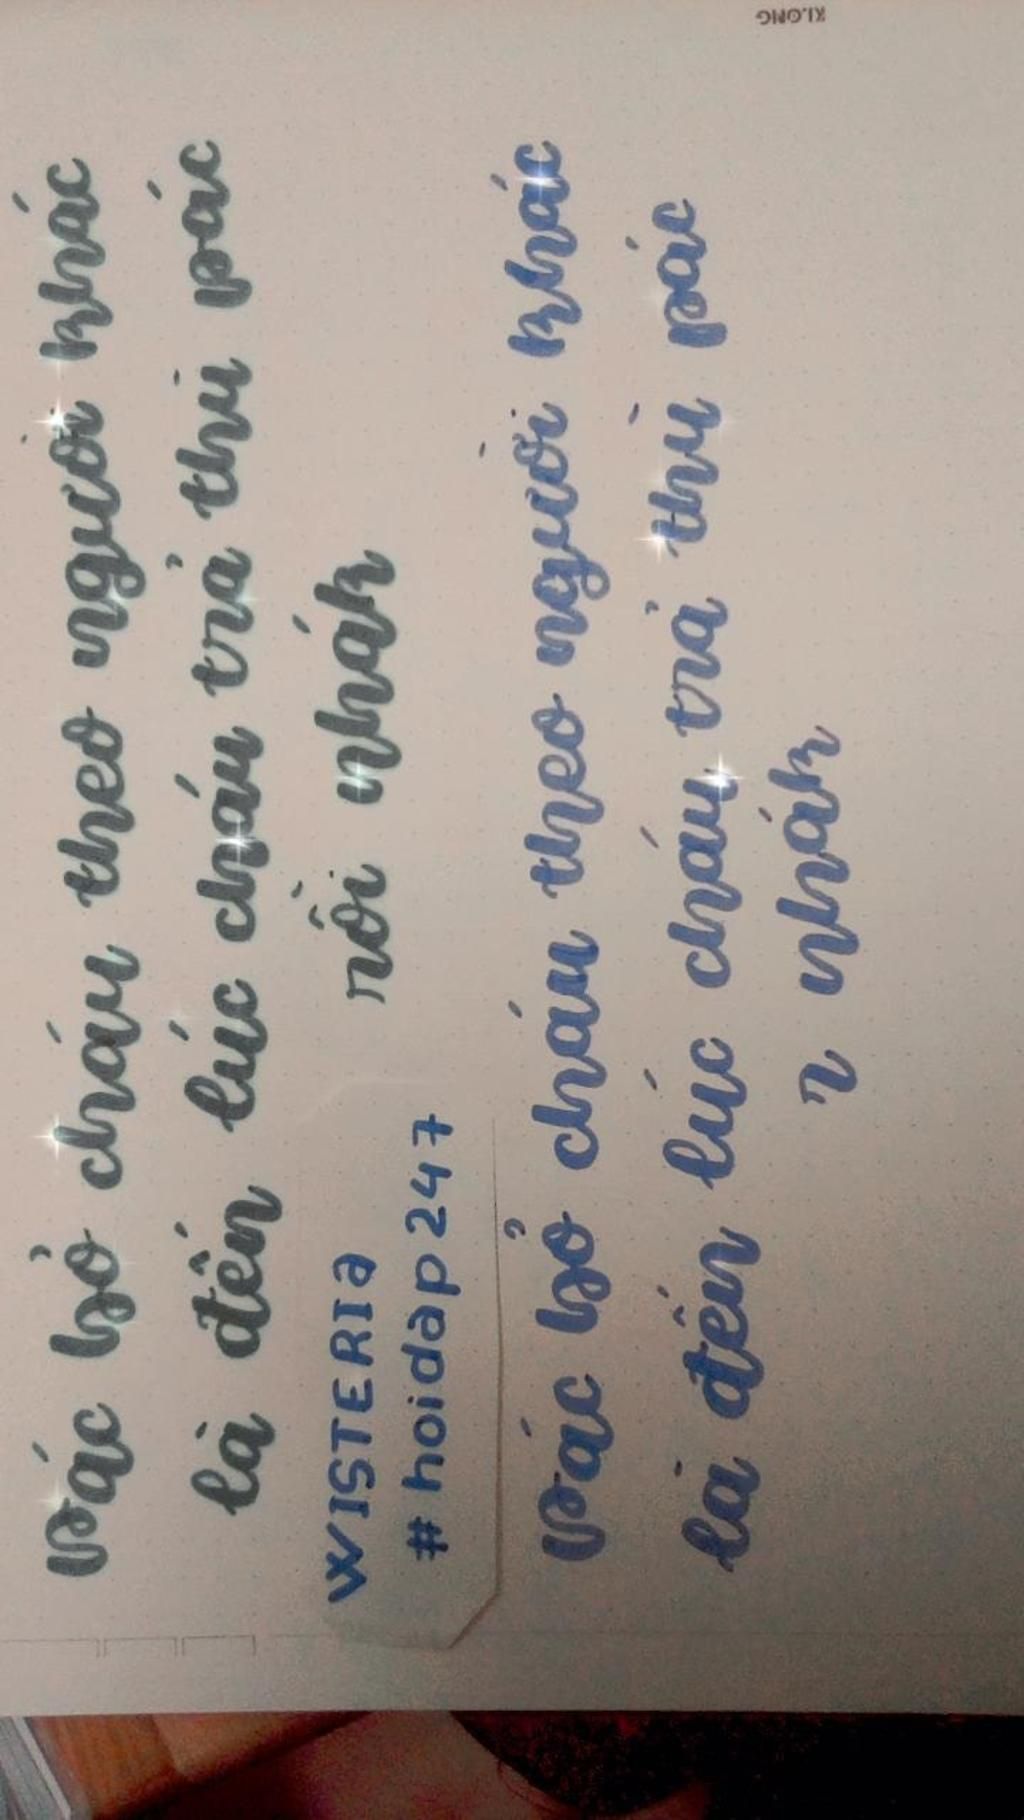 pác bỏ cháu theo người khác
là đến lúc cháu trả thù pác
rồi nhák
WISTERIa
#hoidap247
pác bỏ cháu theo người khác
là đến lúc cháu trả thù pác
r nhák
KLONG